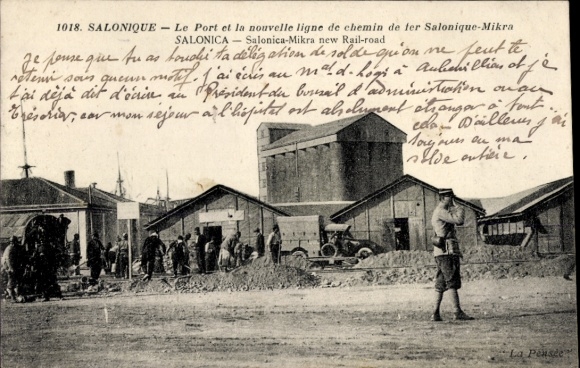 1018. SALONIQUE — Le Port et la nouvelle ligne de chemin de fer Salonique-Mikra
SALONICA — Salonica-Mikra new Rail-road
Je pense que tu as touché ta délégation de solde qu'on ne peut te
retenir sans aucun motif, j'ai écris au mal. d. Logi à Aubervilliers et je
t'ai déjà dit d'écrire au Président du Conseil d'administration ou au
Trésorier, car mon séjour à l'hôpital est absolument étranger à tout
cela D'ailleurs j'ai
toujours eu ma
solde entière.
"La Pensée"